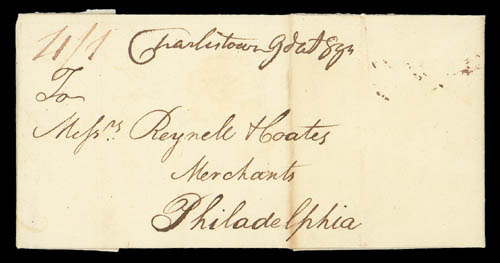 Charlestown
To
Messrs Reynell & Coates
Merchants
Philadelphia